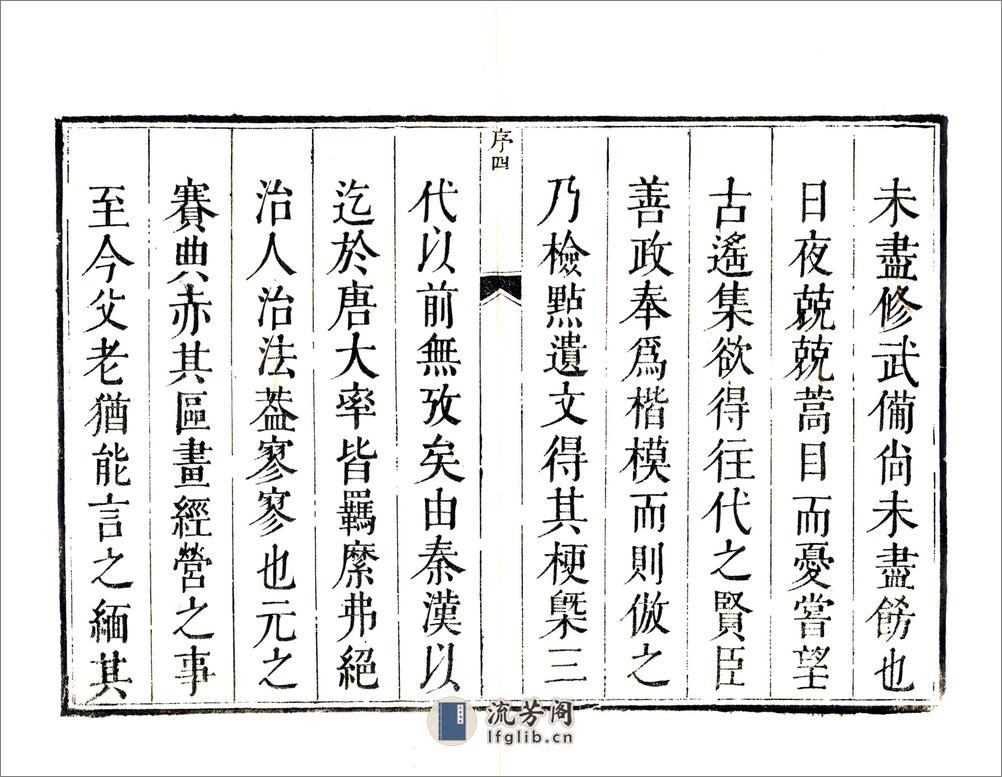 未盡修武備尙未盡飭也
日夜兢兢蒿目而憂嘗望
古遙集欲得往代之賢臣
善政奉爲楷模而則倣之
乃檢㸃遺文得其梗槩三
序四
代以前無攷矣由秦漢以
迄於唐大率皆羈縻弗絕
治人治法葢寥寥也元之
賽典赤其區畫經營之事
至今父老猶能言之緬其
流芳阁
lfglib.cn